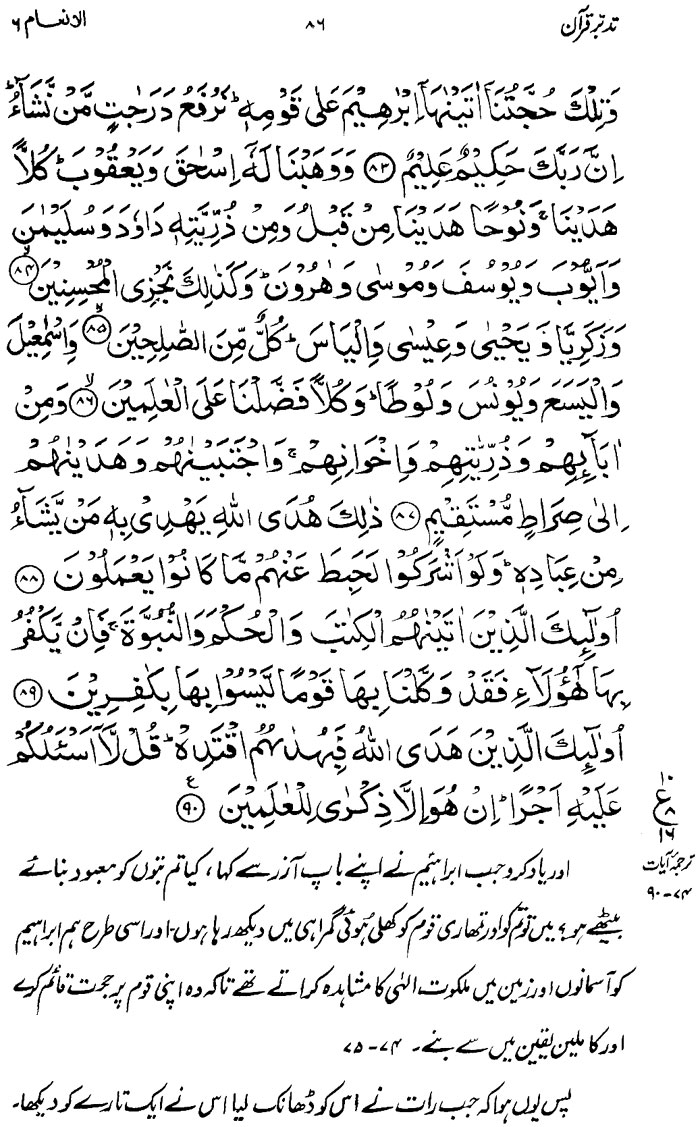 تدبر قرآن ۸۶ الانعام ۶
وَتِلْكَ حُجَّتُنَآ اٰتَيْنٰهَآ اِبْرٰهِيْمَ عَلٰى قَوْمِهٖ ؕ نَرْفَعُ دَرَجٰتٍ مَّنْ نَّشَآءُ ؕ
اِنَّ رَبَّكَ حَكِيْمٌ عَلِيْمٌ ﴿۸۳﴾ وَوَهَبْنَا لَهٗٓ اِسْحٰقَ وَيَعْقُوْبَ ؕ كُلًّا
هَدَيْنَا ۚ وَنُوْحًا هَدَيْنَا مِنْ قَبْلُ وَمِنْ ذُرِّيَّتِهٖ دَاوٗدَ وَسُلَيْمٰنَ
وَاَيُّوْبَ وَيُوْسُفَ وَمُوْسٰى وَهٰرُوْنَ ؕ وَكَذٰلِكَ نَجْزِى الْمُحْسِنِيْنَ ﴿۸۴﴾
وَزَكَرِيَّا وَيَحْيٰى وَعِيْسٰى وَاِلْيَاسَ ؕ كُلٌّ مِّنَ الصّٰلِحِيْنَ ﴿۸۵﴾ وَاِسْمٰعِيْلَ
وَالْيَسَعَ وَيُوْنُسَ وَلُوْطًا ؕ وَكُلًّا فَضَّلْنَا عَلَى الْعٰلَمِيْنَ ﴿۸۶﴾ وَمِنْ
اٰبَآئِهِمْ وَذُرِّيّٰتِهِمْ وَاِخْوَانِهِمْ ۚ وَاجْتَبَيْنٰهُمْ وَهَدَيْنٰهُمْ
اِلٰى صِرَاطٍ مُّسْتَقِيْمٍ ﴿۸۷﴾ ذٰلِكَ هُدَى اللّٰهِ يَهْدِىْ بِهٖ مَنْ يَّشَآءُ
مِنْ عِبَادِهٖ ؕ وَلَوْ اَشْرَكُوْا لَحَبِطَ عَنْهُمْ مَّا كَانُوْا يَعْمَلُوْنَ ﴿۸۸﴾
اُولٰٓئِكَ الَّذِيْنَ اٰتَيْنٰهُمُ الْكِتٰبَ وَالْحُكْمَ وَالنُّبُوَّةَ ۚ فَاِنْ يَّكْفُرْ
بِهَا هٰٓؤُلَآءِ فَقَدْ وَكَّلْنَا بِهَا قَوْمًا لَّيْسُوْا بِهَا بِكٰفِرِيْنَ ﴿۸۹﴾
اُولٰٓئِكَ الَّذِيْنَ هَدَى اللّٰهُ فَبِهُدٰىهُمُ اقْتَدِهْ ؕ قُلْ لَّآ اَسْئَلُكُمْ
عَلَيْهِ اَجْرًا ؕ اِنْ هُوَ اِلَّا ذِكْرٰى لِلْعٰلَمِيْنَ ﴿۹۰﴾ ع
۱۰
ع ۸
۱۶
ترجمۂ آیات
۷۴-۹۰
اور یاد کرو جب ابراہیم نے اپنے باپ آزر سے کہا، کیا تم بتوں کو معبود بنائے
بیٹھے ہو؟ میں تو تم کو اور تمھاری قوم کو کھلی ہوئی گمراہی میں دیکھ رہا ہوں۔ اور اسی طرح ہم ابراہیم
کو آسمانوں اور زمین میں ملکوت الٰہی کا مشاہدہ کراتے تھے تاکہ وہ اپنی قوم پر حجت قائم کرے
اور کاملین یقین میں سے بنے۔ ۷۴-۷۵
پس یوں ہوا کہ جب رات نے اس کو ڈھانک لیا اس نے ایک تارے کو دیکھا۔